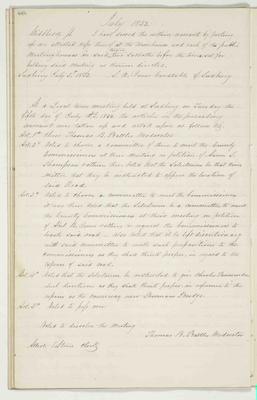 July 1852.
Middlesex ss. I have served the within warrant by posting
up an attested copy thereof at the Town house and each of the public
Meeting houses in said town before the time set for
holding said Meeting as therein directed.
Sudbury July 5th 1852. Constable of Sudbury
At a Legal Town meeting held at Sudbury on Tuesday the
day of July A.D. 1852. the articles in the preceding
warrant were taken up and acted upon as follows viz.
Art. 1st chose Thomas B. Battles Moderator
Art. 2d Voted to choose a committee of three to meet the County
Commissioners at their Meeting on petition of
Thompson & others then voted that the Selectmen be that com-
mittee that they be instructed to oppose the location of
said Road.
Art. 3d Voted to choose a committee to meet the Commissioners
it was then voted that the Selectmen be a committee to meet
the County Commissioners at their meeting on petition
of & others to request the Commissioners to
said road. Also voted that it be left discretionary
with said committee to make such propositions to the
commissioners as they shall think proper, in regard to the
repairs of said road.
Art. 4th Voted that the Selectmen be instructed to give Charles
such directions as they shall think proper in reference to the
repairs on the causeway near Bridge.
Art. 5th Voted to pass over
Voted to dissolve the Meeting
Thomas B. Battles Moderator
Attest Clerk